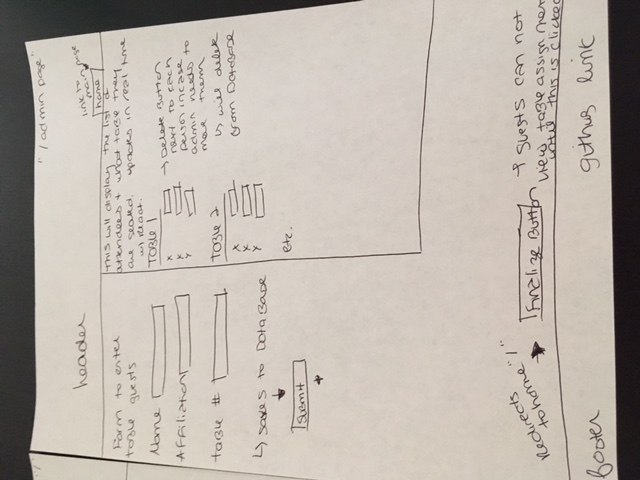 "/admin page"
header
link to
main page
home
Form to enter
table guests
Name
Affiliation
table #
↳ saves to DataBase
submit
*
This will display the list of
attendees + what table they
are seated. updates in real time
w/ React.
TABLE 1
x
x
Y
→ Delete Button
next to each
person incase
admin needs to
move them
↳ will delete
from Database
TABLE 2
x
x
Y
etc.
Redirects
to home "/"
Finalize Button
* guests can not
view table assignment
until this is clicked
footer
github link